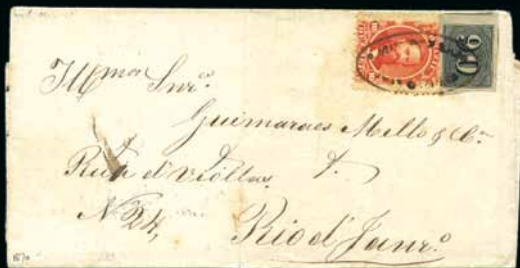 Illmos Snres
Guimaraes Mello & Ca
Rua d'Violtas
No 24,
Rio d' Janro
90